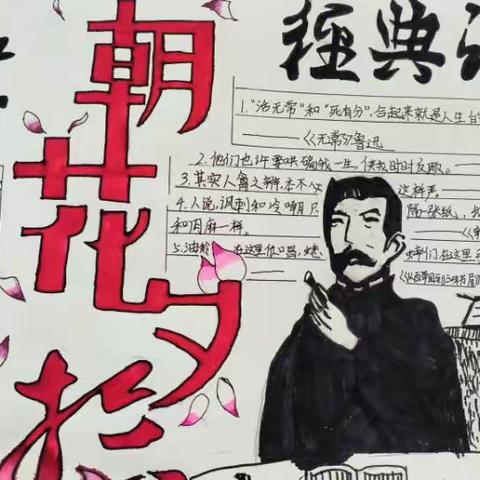 朝花夕拾
經典
1.“活无常”和“死有分”,合起来就是人生
——《无常》鲁迅
2.他们也许要哄骗我一生,使我时时反顾。
3.其实人禽之辨,本不必 这样严
4.人说,讽刺和冷嘲只 隔一张纸,
和肉麻一样。
5.油蛉 在这里低唱,蟋 蟀们在这里
《从百草园到三味书屋